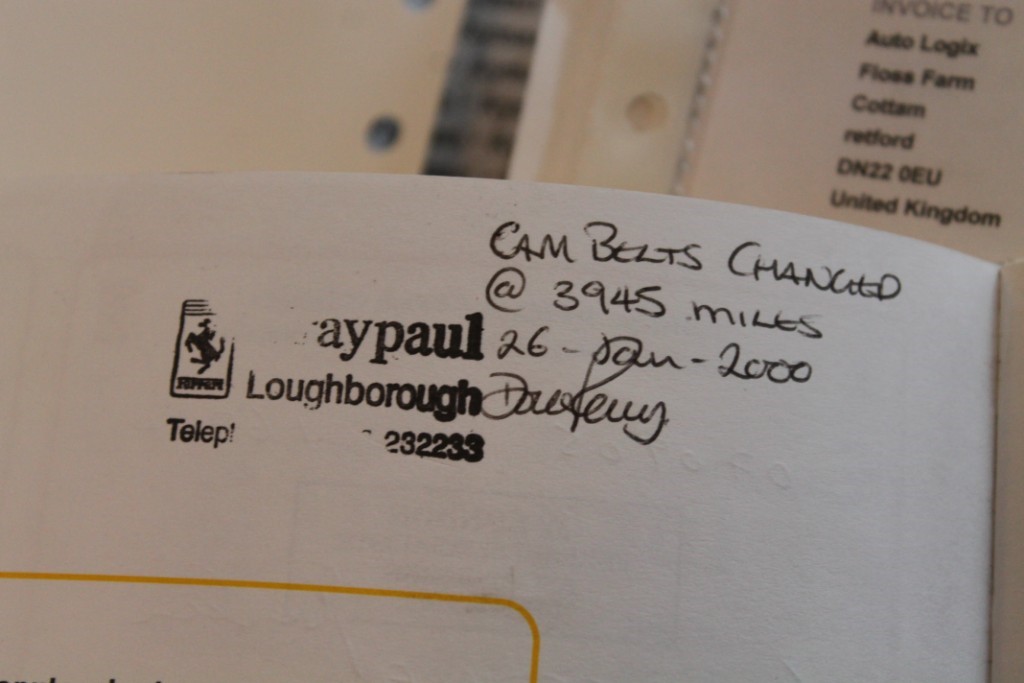 INVOICE TO
Auto Logix
Floss Farm
Cottam
retford
DN22 0EU
United Kingdom
CAM BELTS CHANGED
@ 3945 MILES
26-Jan-2000
Ferrari
aypaul
Loughborough
Telep
232233